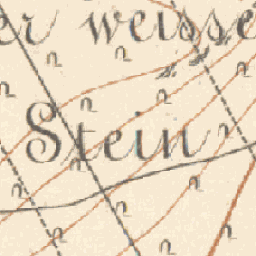 er weisse
Stein